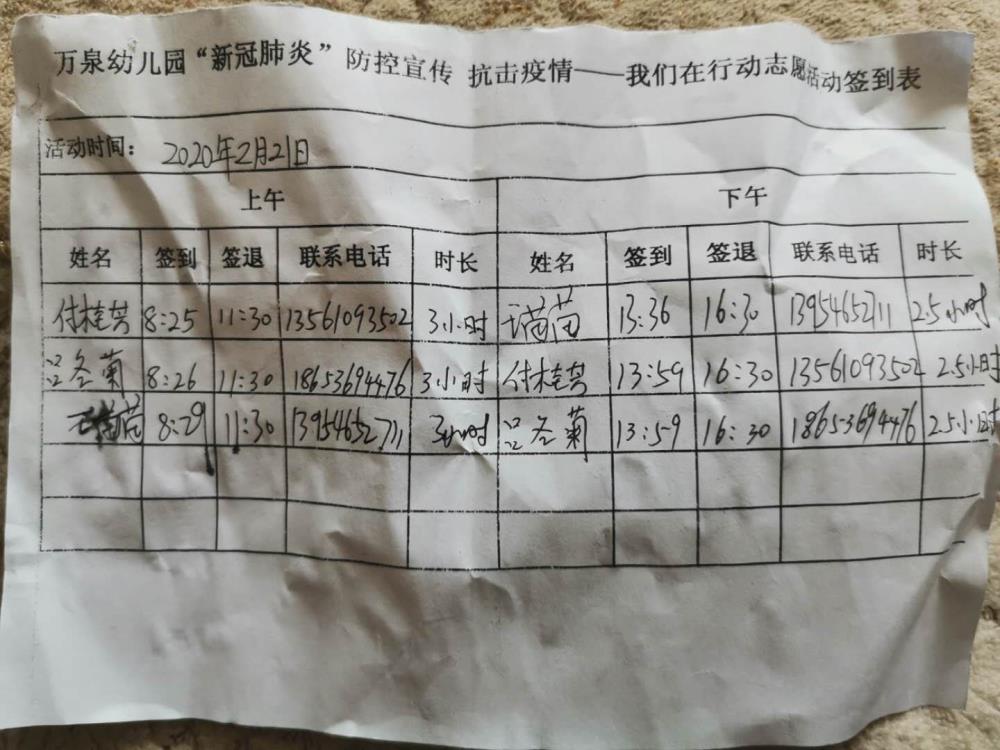 万泉幼儿园“新冠肺炎”防控宣传 抗击疫情——我们在行动志愿活动签到表
活动时间: 2020年2月21日
上午 下午
姓名 签到 签退 联系电话 时长 姓名 签到 签退 联系电话 时长
付桂芳 8:25 11:30 13561093502 3小时 苗苗 13:36 16:30 13954652711 2.5小时
冬菊 8:26 11:30 18653694476 3小时 付桂芳 13:59 16:30 13561093502 2.5小时
苗 8:29 11:30 13954652711 3小时 冬菊 13:59 16:30 18653694476 2.5小时